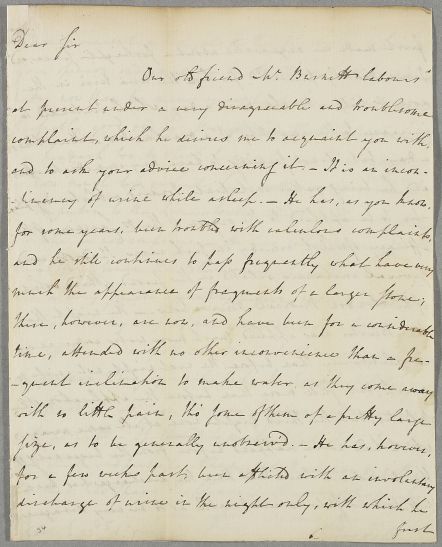 Dear Sir
Our old friend Mr. Burnett labours
at present under a very disagreeable and troublesome
complaint, which he desires me to acquaint you with,
and to ask your advice concerning it. – It is an incon-
-tinency of urine while asleep. – He has, as you know,
for some years, been troubled with calculous complaints,
and he still continues to pass frequently what have very
much the appearance of fragments of a larger stone;
these, however, are now, and have been for a considerable
time, attended with no other inconvenience than a fre-
-quent inclination to make water. as they come away
with so little pain, tho' some of them of a pretty large
size, as to be generally unobserv'd. – He has, however,
for a few weeks past, been afflicted with an involuntary
discharge of urine in the night only, with which he
first